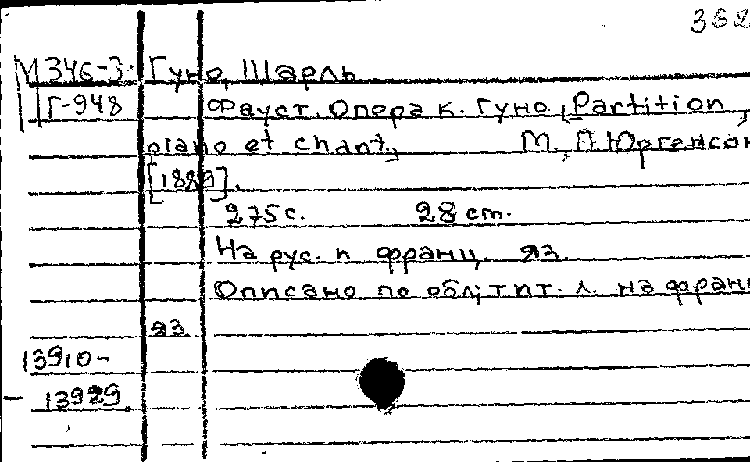 352
М 346-3. Гуно, Шарль
Г-948 Фауст. Опера к. Гуно, Partition,
piano et chant, М., П. Юргенсон
[188].
275 с. 28 cm.
На рус. и франц. яз.
Описано по обл; тит. л. на франц
яз.
13910-
- 13929.